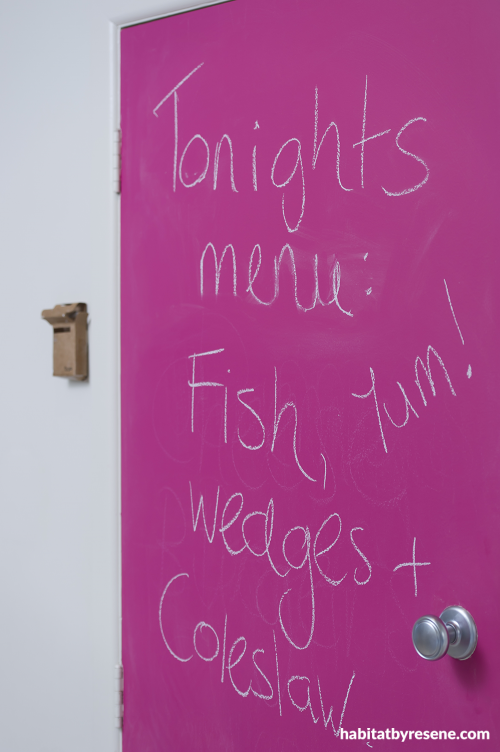 Tonights
menu:
Fish, Yum!
wedges +
Coleslaw
habitatbyresene.com